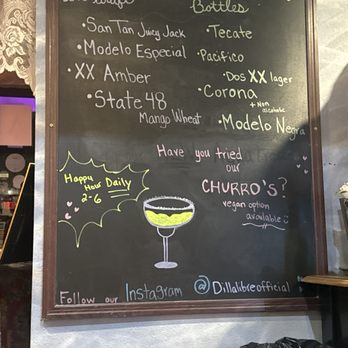 Draft
Bottles
• San Tan Juicy Jack
• Modelo Especial
• XX Amber
• State 48
Mango Wheat
• Tecate
• Pacifico
• Dos XX lager
• Corona
+ Non alcoholic
• Modelo Negra
Happy
Hour Daily
2-6
Have you tried
our
CHURRO'S?
vegan option
available
Follow our Instagram @Dillalibreofficial